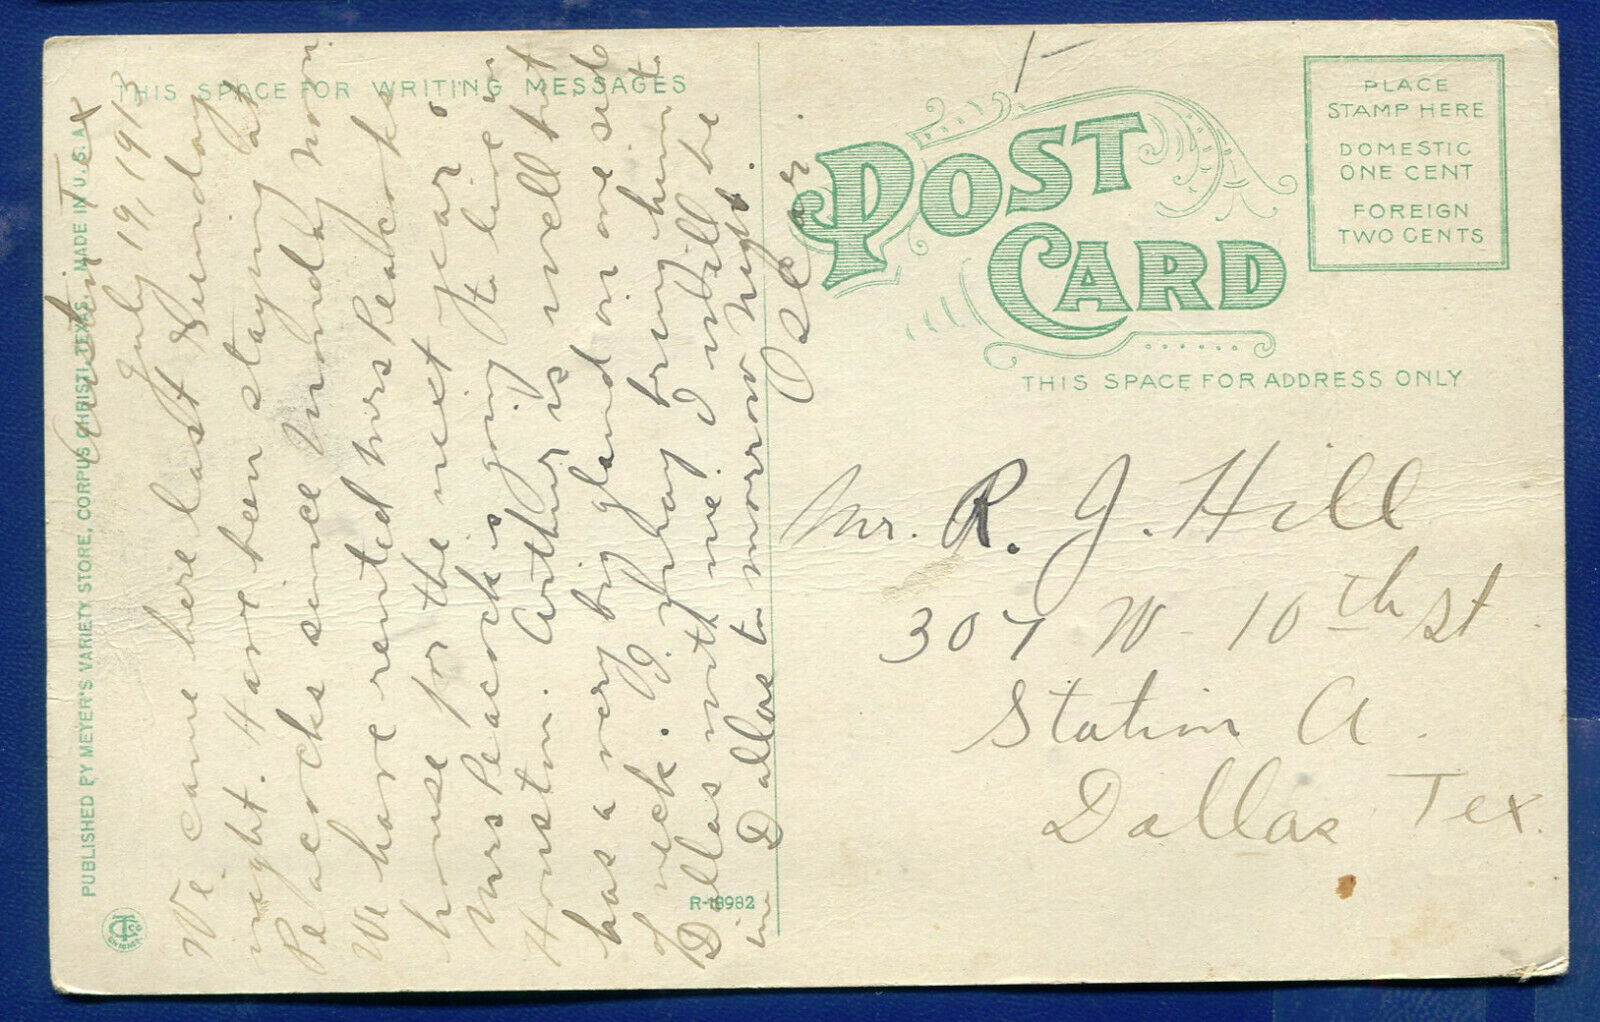 THIS SPACE FOR WRITING MESSAGES
Tex
July 19, 1913
We came here last Sunday
night. Have been staying at
Peacocks since Monday noon.
We have rented Mrs Peacocks
house for the next year
Mrs Peacock is going to live in
Houston. Arthur is well but
has a very big gland on one side
of neck. I may bring him to
Dallas with me. I will be
in Dallas to morrow night.
Oscar.
PUBLISHED BY MEYER'S VARIETY STORE, CORPUS CHRISTI, TEXAS. MADE IN U.S.A.
R-18982
POST CARD
PLACE
STAMP HERE
DOMESTIC
ONE CENT
FOREIGN
TWO CENTS
THIS SPACE FOR ADDRESS ONLY
Mr. R. J. Hill
307 W - 10th St
Station A.
Dallas Tex.